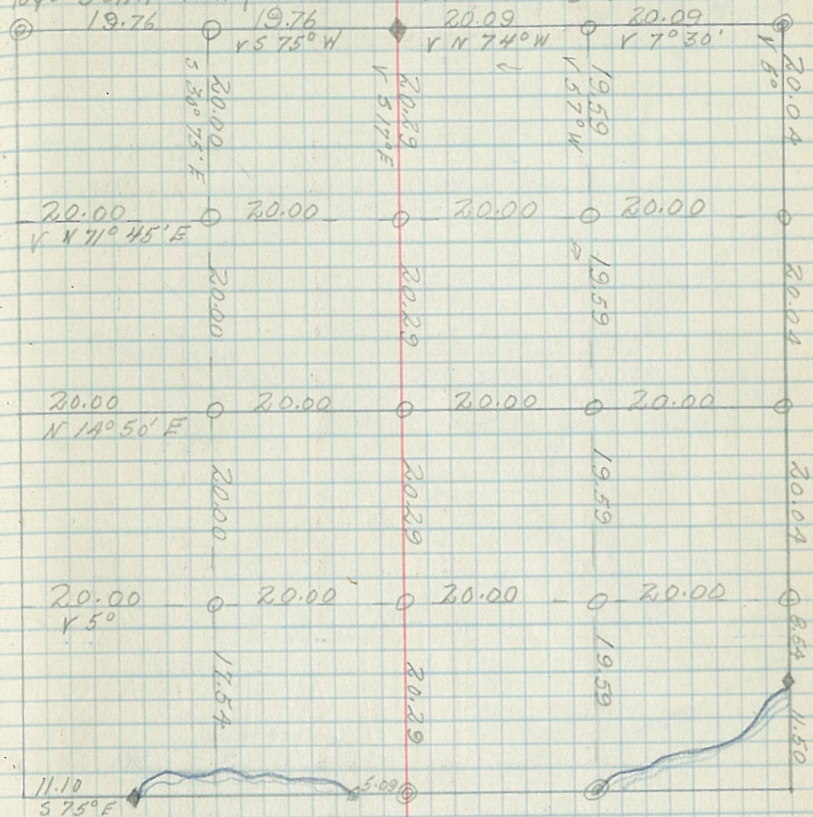 19.76 19.76 20.09 20.09
V S 75° W V N 74° W V 7° 30'
20.00
S 30° 75' E
20.29
V S 17° E
19.59
V 57° W
20.04
V 5°
20.00 20.00 20.00 20.00
V N 71° 45' E
20.00 20.29 19.59 20.04
20.00 20.00 20.00 20.00
N 14° 50' E
20.00 20.29 19.59 20.04
20.00 20.00 20.00 20.00
V 5°
17.54 20.29 19.59 8.54
11.50
11.10 5.09
S 75° E